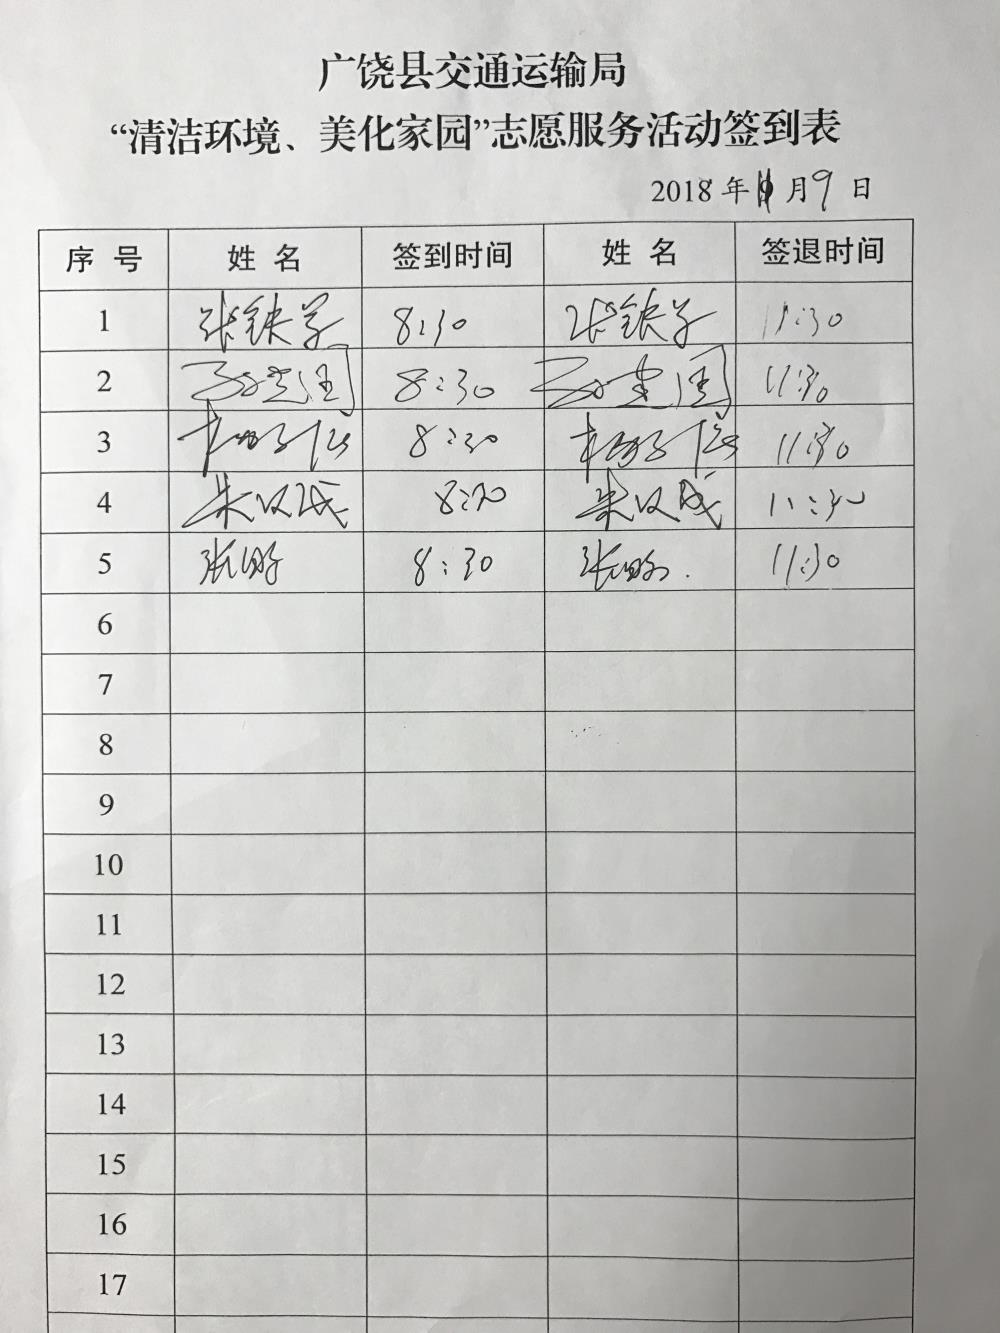 广饶县交通运输局
“清洁环境、美化家园”志愿服务活动签到表
2018 年 11 月 9 日
序 号 姓 名 签到时间 姓 名 签退时间
1 张铁军 8:30 张铁军 11:30
2 8:30 11:30
3 8:30 11:30
4 朱汉成 8:30 朱汉成 11:30
5 张 8:30 张 11:30
6
7
8
9
10
11
12
13
14
15
16
17